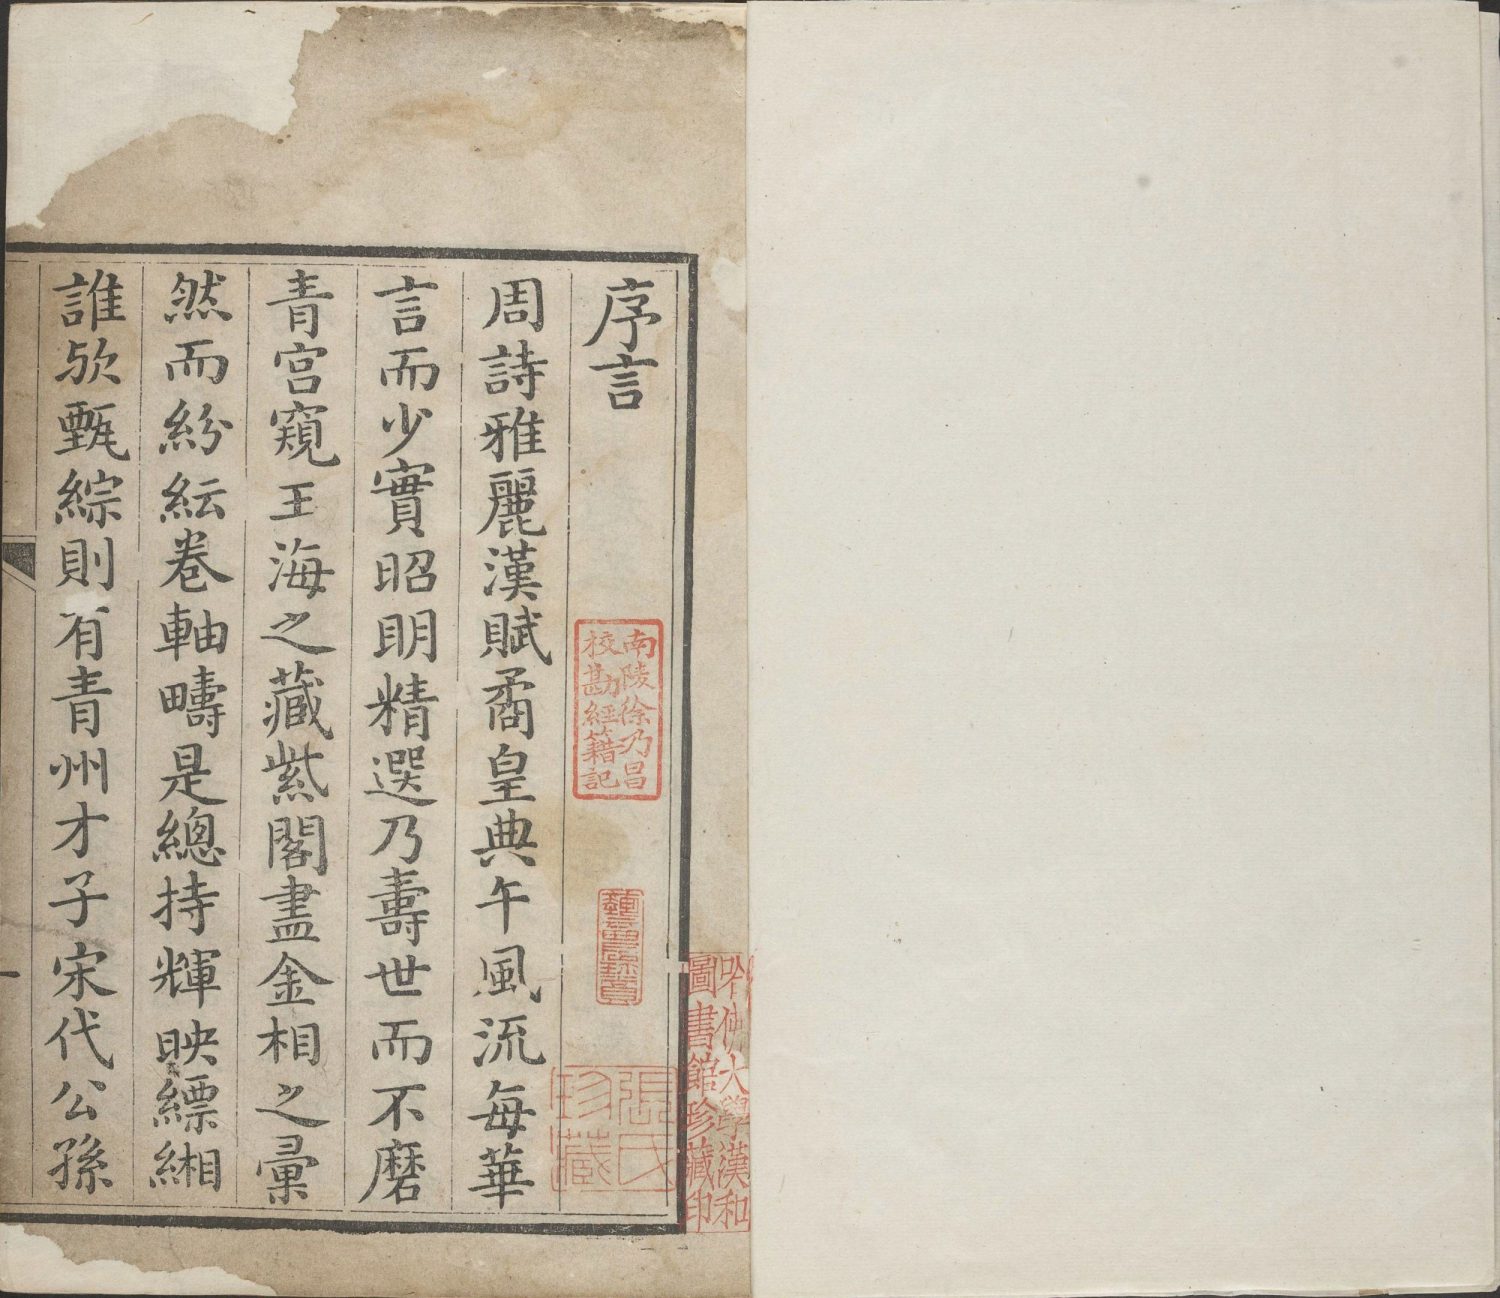 序言
周詩雅麗漢賦矞皇典午風流每華
言而少實昭明精選乃壽世而不磨
青宮窺玉海之藏紫閣盡金相之彙
然而紛紜卷軸疇是總持輝映縹緗
誰歟甄綜則有青州才子宋代公孫
南陵徐乃昌
校勘經籍記
張氏
珍藏
哈佛大學漢和
圖書館珍藏印